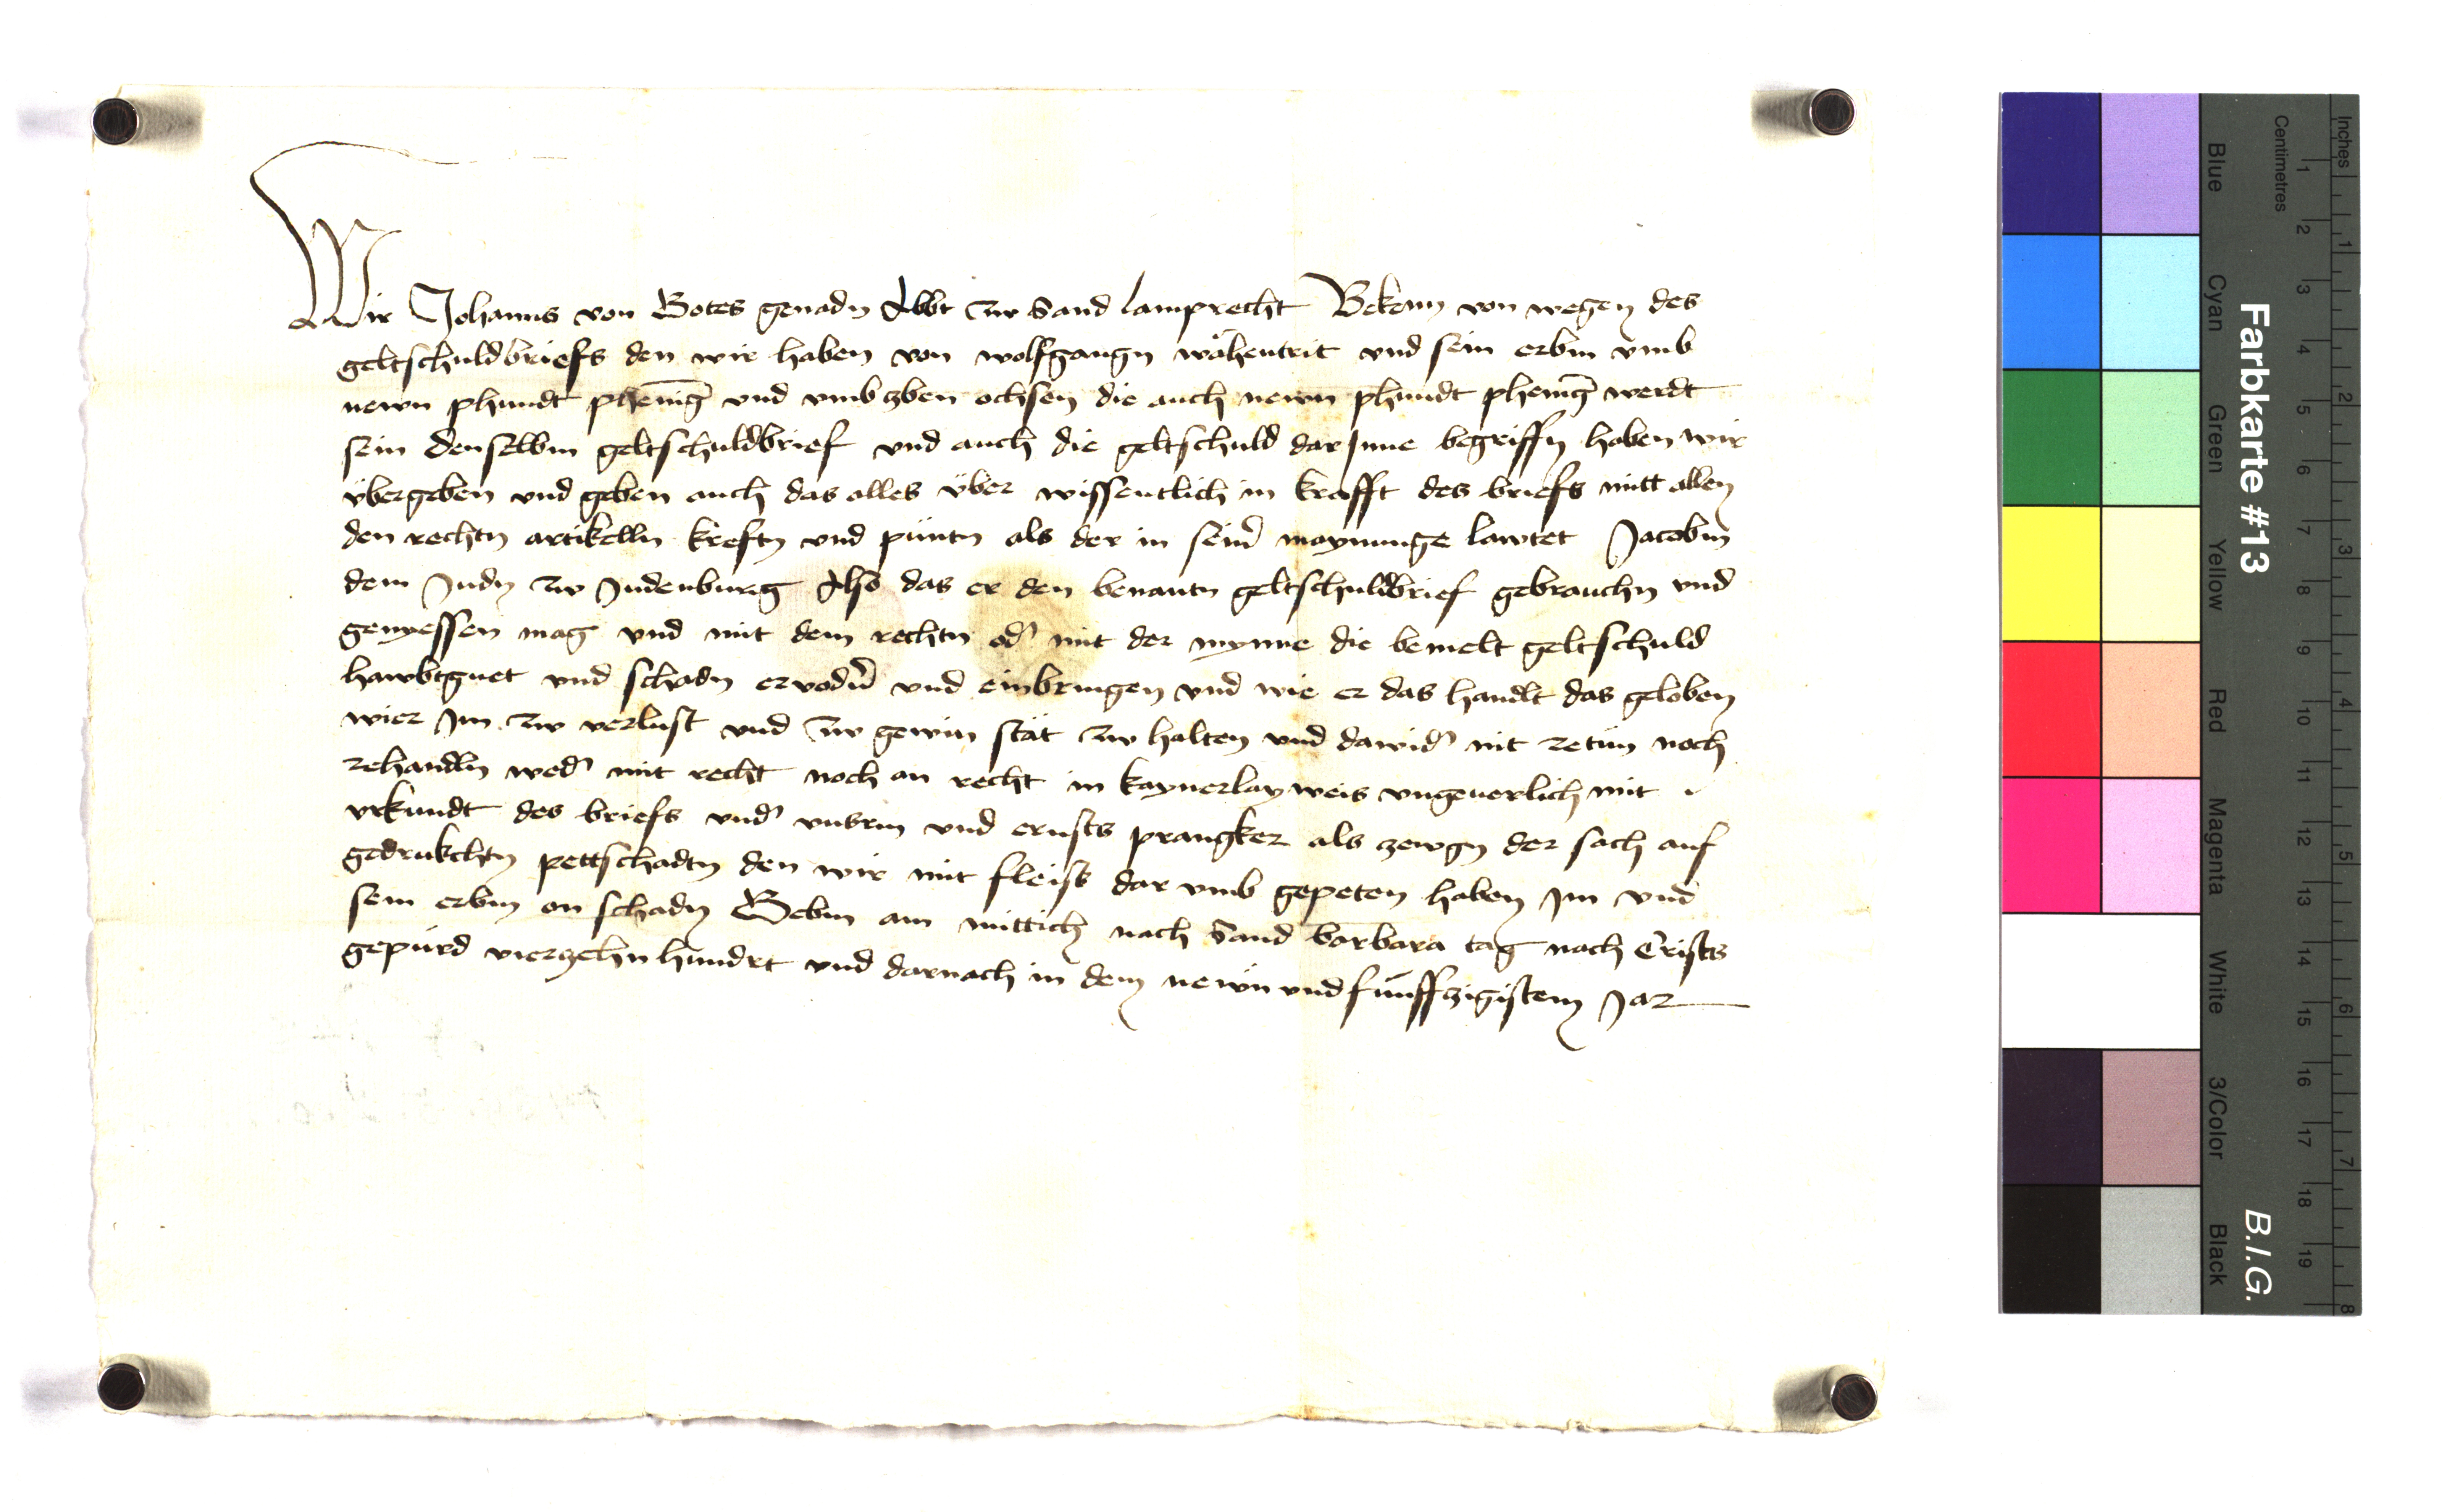 Wir Johanns von Gotes genadn Abbt zw Sand lamprecht Bekenn von wegen des
geltschuldbriefs den wir haben von wolfgangn wähentrit vnd sein erbm vmb
newn phundt phening vnd vmb zben ochsen die auch newn phundt phening werdt
sein denselbm geltschuldbrief vnd auch die geltschuld dar Inne begriffn haben wir
übergeben vnd geben auch das alles über wissentlich in krafft des briefs mitt allen
den rechtn artikelln kreftn vnd püntn als der in seiner maynunge lawtet Jacobm
dem Judn zw Judenburg Also das er den benantn geltschuldbrief gebrauchn vnd
genyessen mag vnd mit dem rechtn oder mit der mynne die bemelt geltschuld
hawbtguet vnd schadn ervodern vnd einbringen vnd wie er das handlt das geloben
wier Im zw verlust vnd zw gewin stät zw halten vnd dawider nit zetün noch
zehandln weder mit recht noch an recht in kaynerlay weis vngeuerlich mit
vrkundt des briefs vnder vnsrm vnd ernsts prangker als zewgn der sach auf
gedrukchtn pettschadtn den wir mit fleiss dar vmb gepeten haben Im vnd
sein erbm an schadn Gebm am mittich nach Sand barbara tag nach Crists
gepürd vierzehn hundrt vnd darnach in dem newn vnd fünffzigistem Jar
Farbkarte #13
B.I.G.
Inches
Centimetres
Blue
Cyan
Green
Yellow
Red
Magenta
White
3/Color
Black
1 2 3 4 5 6 7 8 9 10 11 12 13 14 15 16 17 18 19
1 2 3 4 5 6 7 8